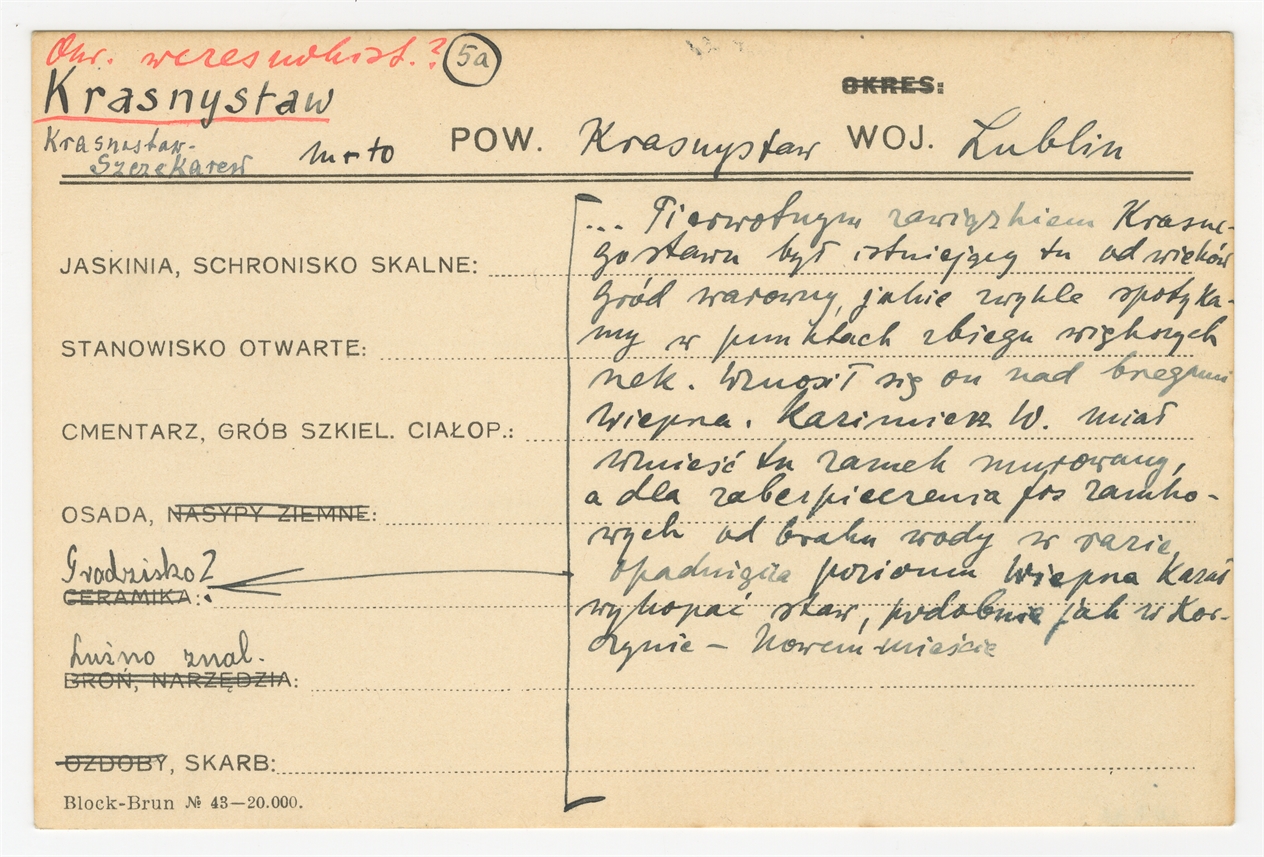 Okr. wczesnohist.? 5a
Krasnystaw
OKRES:
Krasnostaw-
Szczekarew
m-to POW. Krasnystaw WOJ. Lublin
JASKINIA, SCHRONISKO SKALNE:
STANOWISKO OTWARTE:
CMENTARZ, GRÓB SZKIEL. CIAŁOP.:
OSADA, NASYPY ZIEMNE:
Grodzisko?
CERAMIKA:
Luźno znal.
BROŃ, NARZĘDZIA:
OZDOBY, SKARB:
Block-Brun № 43—20.000.
... Pierwotnym zawiązkiem Krasne-
gostawu był istniejący tu od wieków
gród warowny, jakie zwykle spotyka-
my w punktach zbiegu większych
rzek. Wznosił się on nad brzegami
Wieprza. Kazimierz W. miał
wznieść tu zamek murowany,
a dla zabezpieczenia fos zamko-
wych od braku wody w razie
opadnięcia poziomu Wieprza kazał
wykopać staw, podobnie jak w Kor-
czynie – Nowem-mieście